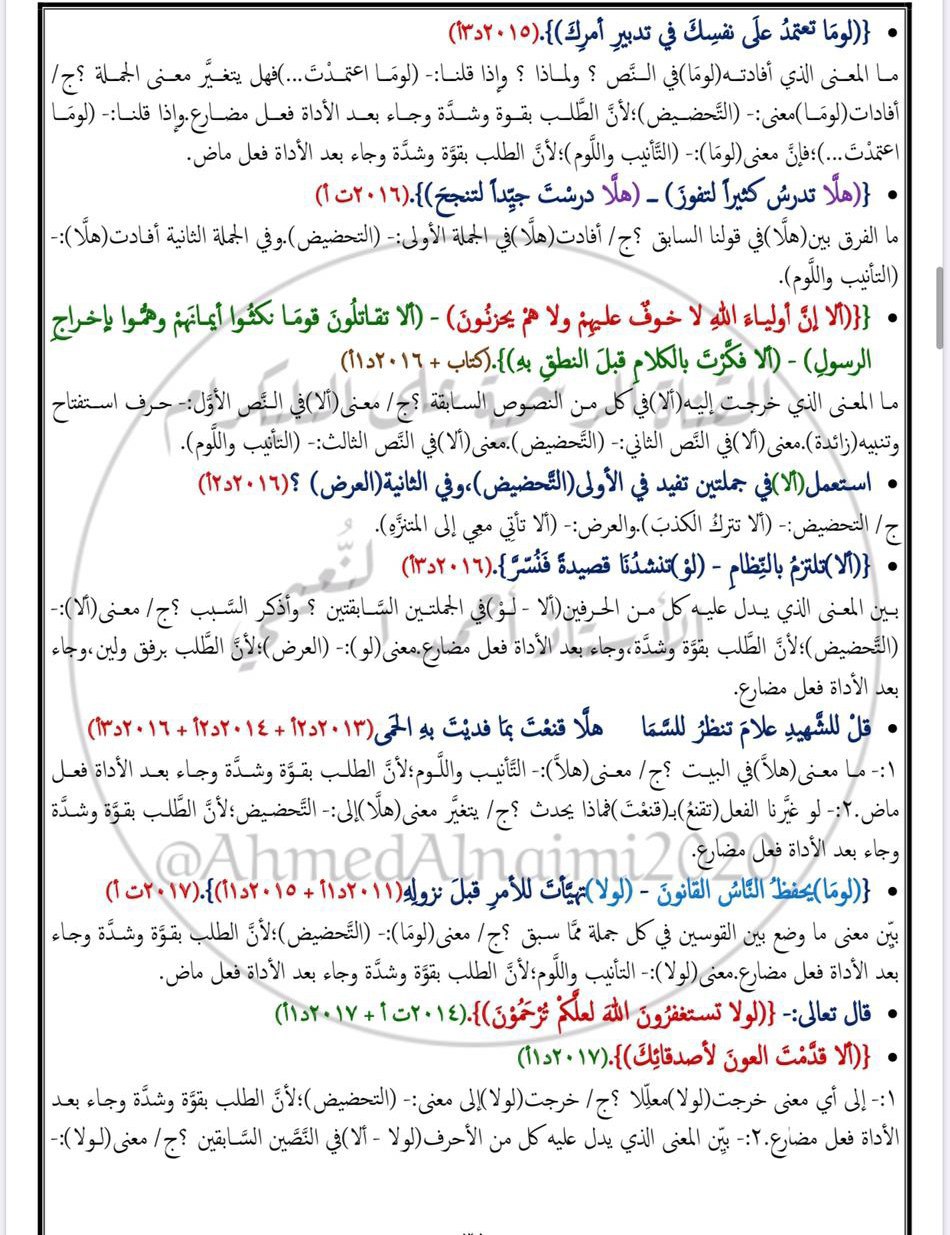 • {(لومَا تعتمدُ علَى نفسِكَ في تدبيرِ أمرِكَ)}.(٢٠١٥د٣أ)
ما المعنى الذي أفادته(لومَا)في النَّص ؟ ولماذا ؟ وإذا قلنا:- (لومَا اعتمدْتَ...)فهل يتغيَّر معنى الجملة ؟ج/
أفادات(لومَا)معنى:- (التَّحضيض)؛لأنَّ الطَّلب بقوة وشدَّة وجاء بعد الأداة فعل مضارع.وإذا قلنا:- (لومَا
اعتمدْتَ...)؛فإنَّ معنى(لومَا):- (التَّأنيب واللَّوم)؛لأنَّ الطلب بقوَّة وشدَّة وجاء بعد الأداة فعل ماض.
• {(هلَّا تدرسُ كثيراً لتفوزَ) – (هلَّا درسْتَ جيِّداً لتنجحَ)}.(٢٠١٦ت أ)
ما الفرق بين(هلَّا)في قولنا السابق ؟ج/ أفادت(هلَّا)في الجملة الأولى:- (التحضيض).وفي الجملة الثانية أفادت(هلَّا):-
(التأنيب واللَّوم).
• {{(ألا إنَّ أولياءَ اللهِ لا خوفٌ عليهِمْ ولا همْ يحزنُونَ) - (ألا تقاتلُونَ قومَا نكثُوا أيمانَهمْ وهمُّوا بإخراجِ
الرسولِ) - (ألا فكَّرْتَ بالكلامِ قبلَ النطقِ بهِ)}.(كتاب + ٢٠١٦د١أ)
ما المعنى الذي خرجت إليه(ألا)في كل من النصوص السابقة ؟ج/ معنى(ألا)في النَّص الأوَّل:- حرف استفتاح
وتنبيه(زائدة).معنى(ألا)في النَّص الثاني:- (التَّحضيض).معنى(ألا)في النَّص الثالث:- (التأنيب واللَّوم).
• استعمل(ألا)في جملتين تفيد في الأولى(التَّحضيض)،وفي الثانية(العرض) ؟(٢٠١٦د٢أ)
ج/ التحضيض:- (ألا تتركُ الكذبَ).والعرض:- (ألا تأتي معي إلى المتنزَّهِ).
• {(ألَا)تلتزمُ بالنِّظامِ - (لوْ)تنشدُنَا قصيدةً فَنُسَرَّ}.(٢٠١٦د٣أ)
بين المعنى الذي يدل عليه كل من الحرفين(ألا - لوْ)في الجملتين السَّابقتين ؟ وأذكر السَّبب ؟ج/ معنى(ألا):-
(التَّحضيض)؛لأنَّ الطلب بقوَّة وشدَّة،وجاء بعد الأداة فعل مضارع.معنى(لو):- (العرض)؛لأنَّ الطَّلب برفق ولين،وجاء
بعد الأداة فعل مضارع.
• قلْ للشَّهيدِ علامَ تنظرُ للسَّمَا هلَّا قنعْتَ بمَا فديْتَ بهِ الحمَى(٢٠١٣د٢أ + ٢٠١٤د٢أ + ٢٠١٦د٣أ)
١:- ما معنى(هلاَّ)في البيت ؟ج/ معنى(هلاَّ):- التَّأنيب واللَّوم؛لأنَّ الطلب بقوَّة وشدَّة وجاء بعد الأداة فعل
ماض.٢:- لو غيَّرنا الفعل(تقنعُ)بـ(قنعْتَ)فماذا يحدث ؟ج/ يتغيَّر معنى(هلَّا)إلى:- التَّحضيض؛لأنَّ الطَّلب بقوَّة وشدَّة
وجاء بعد الأداة فعل مضارع.
• {(لومَا)يحفظُ النَّاسُ القانونَ - (لولا)تهيَّأتَ للأمرِ قبلَ نزولِهِ(٢٠١١د١أ + ٢٠١٥د١أ)}.(٢٠١٧ت أ)
بيِّن معنى ما وضع بين القوسين في كل جملة ممَّا سبق ؟ج/ معنى(لومَا):- (التَّحضيض)؛لأنَّ الطلب بقوَّة وشدَّة وجاء
بعد الأداة فعل مضارع.معنى(لولا):- التأنيب واللَّوم؛لأنَّ الطلب بقوَّة وشدَّة وجاء بعد الأداة فعل ماض.
• قال تعالى:- {(لولا تستغفرُونَ اللهَ لعلَّكمْ تُرْحَمُوْنَ)}.(٢٠١٤ت أ + ٢٠١٧د١أ)
• {(ألا قدَّمْتَ العونَ لأصدقائِكَ)}.(٢٠١٧د١أ)
١:- إلى أي معنى خرجت(لولا)معلِّلا ؟ج/ خرجت(لولا)إلى معنى:- (التحضيض)؛لأنَّ الطلب بقوَّة وشدَّة وجاء بعد
الأداة فعل مضارع.٢:- بيِّن المعنى الذي يدل عليه كل من الأحرف(لولا - ألا)في النَّصَّين السَّابقين ؟ج/ معنى(لولا):-
@AhmedAlnaimi2020